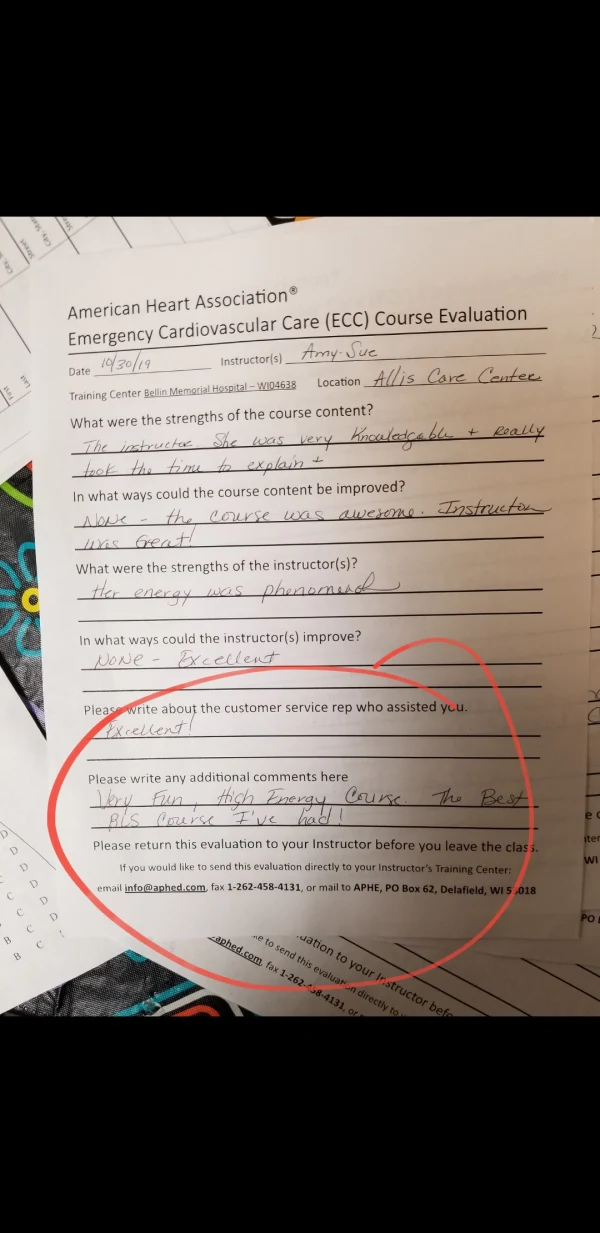 American Heart Association®
Emergency Cardiovascular Care (ECC) Course Evaluation
Date 10/30/19 Instructor(s) Amy-Sue
Training Center Bellin Memorial Hospital – WI04638 Location Allis Care Center
What were the strengths of the course content?
The instructor. She was very Knowledgeable + Really
took the time to explain +
In what ways could the course content be improved?
NONE - the course was awesome. Instructor
was Great!
What were the strengths of the instructor(s)?
Her energy was phenomenal
In what ways could the instructor(s) improve?
NONE - Excellent
Please write about the customer service rep who assisted you.
Excellent!
Please write any additional comments here
Very Fun, High Energy Course. The Best
BLS Course I've had!
Please return this evaluation to your Instructor before you leave the class.
If you would like to send this evaluation directly to your Instructor's Training Center:
email info@aphed.com, fax 1-262-458-4131, or mail to APHE, PO Box 62, Delafield, WI 53018
uation to your Instructor befo
e to send this evaluation directly to
aphed.com, fax 1-262-458-4131, or